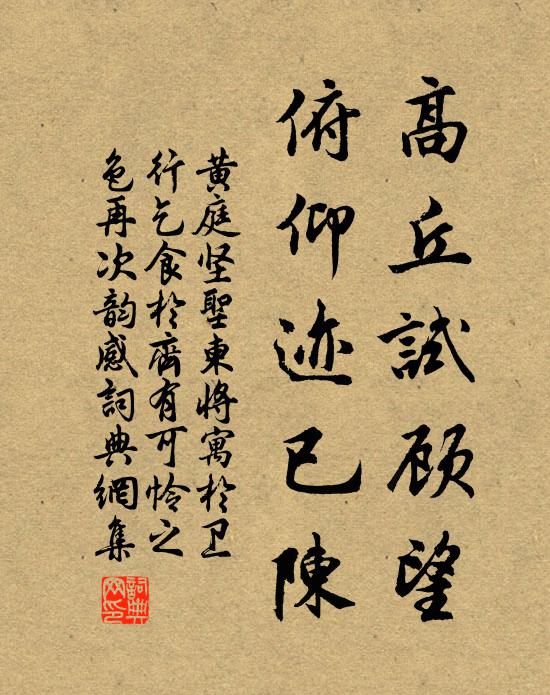 高丘試顾望
俯仰迹已陳
黄庭坚聖東将寓於卫
行乞食於齊有可怜之
色再次韵感詞典網集
詞典网印